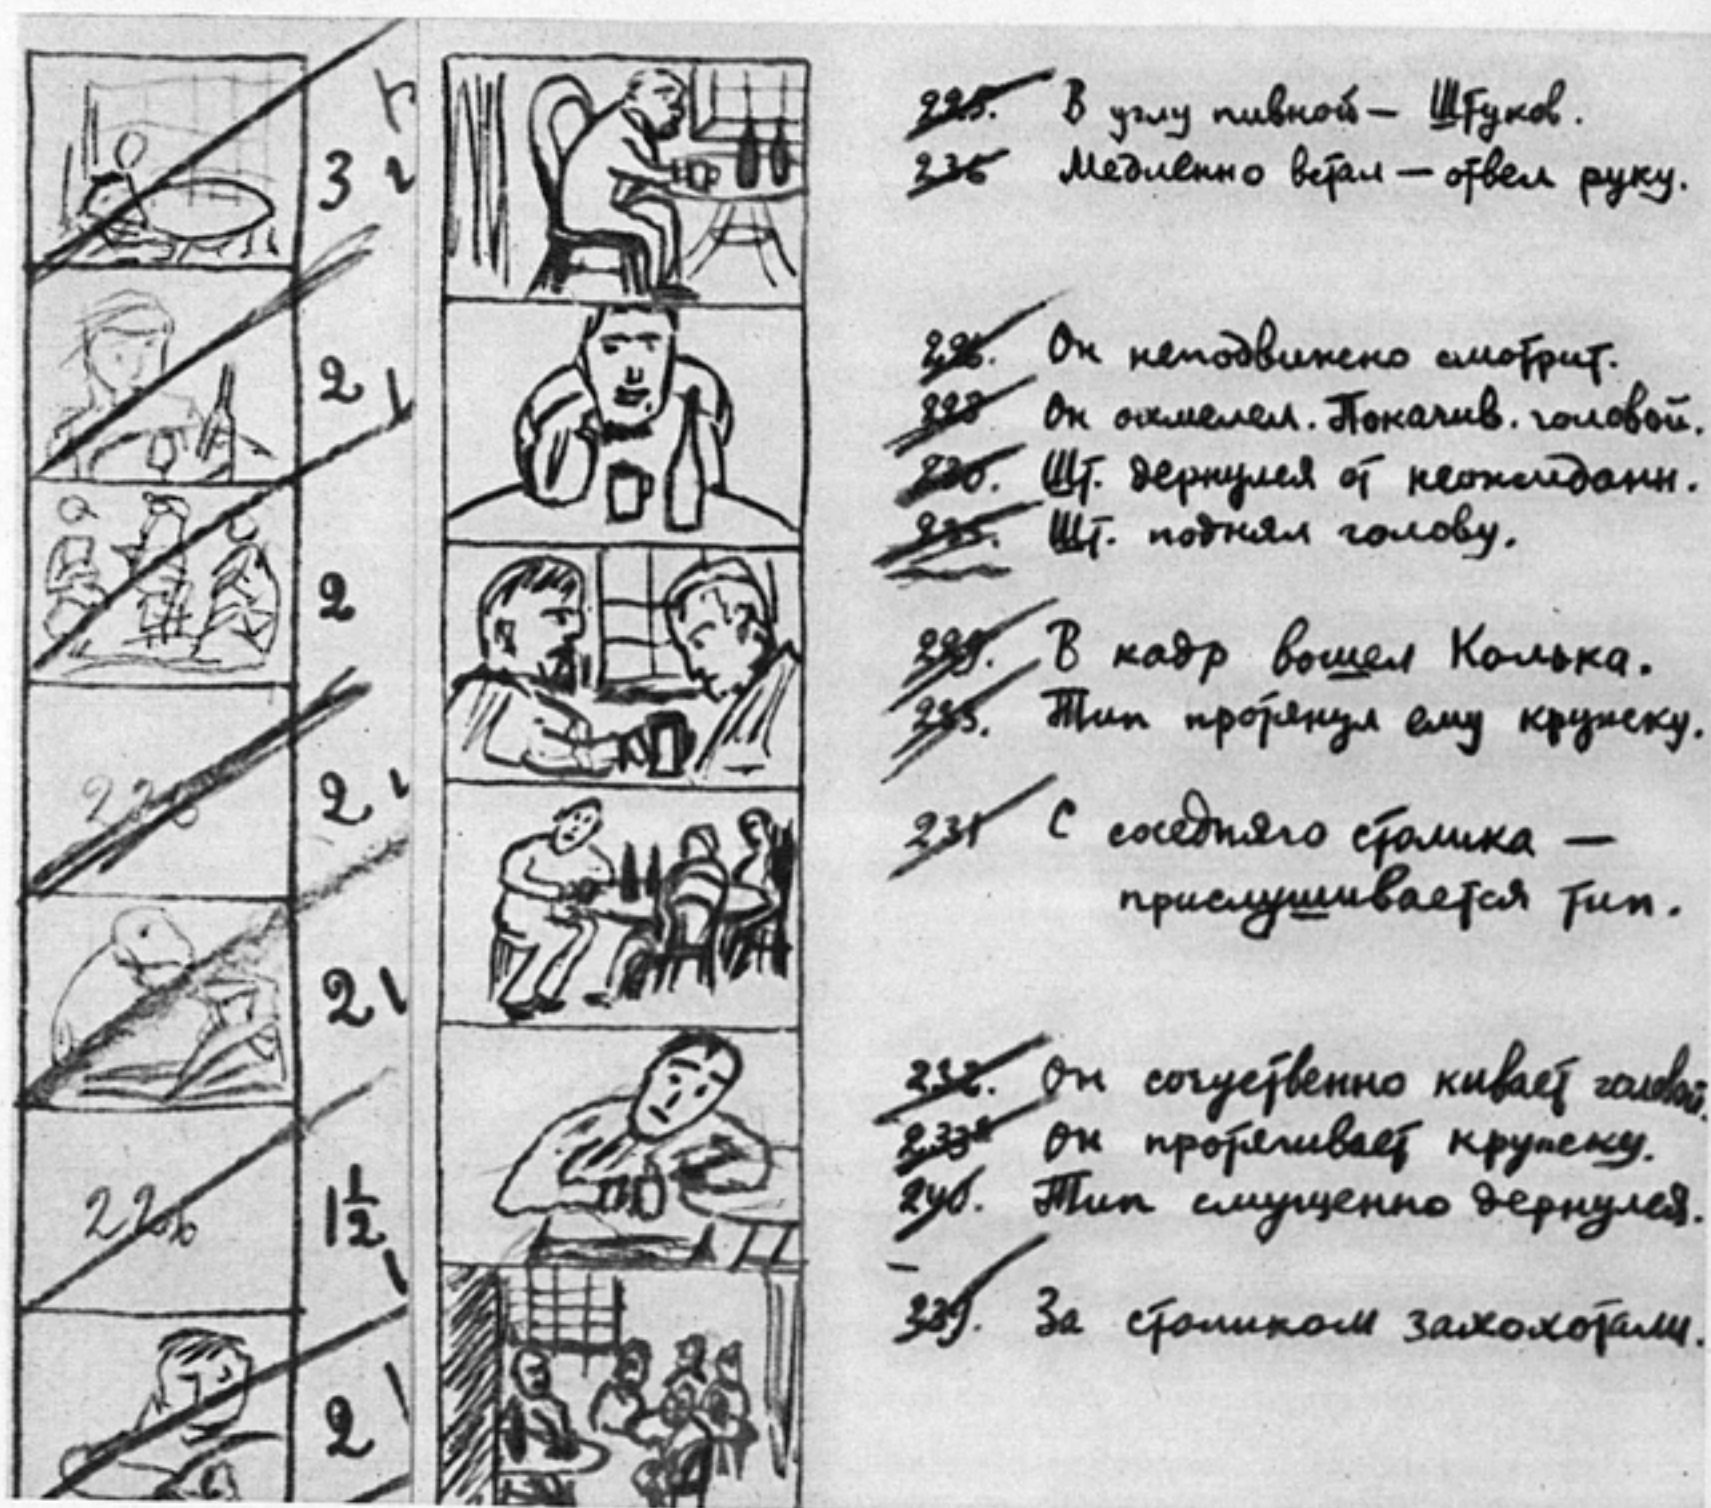 3 2
2
2
2
2
1 1/2
2
225. В углу пивной — Штуков.
236 Медленно встал — отвел руку.
226. Он неподвижно смотрит.
228 Он охмелел. Покачив. головой.
230. Шт. дернулся от неожидан.
235. Шт. поднял голову.
229. В кадр вошел Колька.
Тип протянул ему кружку.
231 С соседняго столика —
прислушивается тип.
232. Он сочуственно кивает головой.
233 Он протягивает кружку.
240. Тип смущенно дернулся.
239. За столиком захохотали.